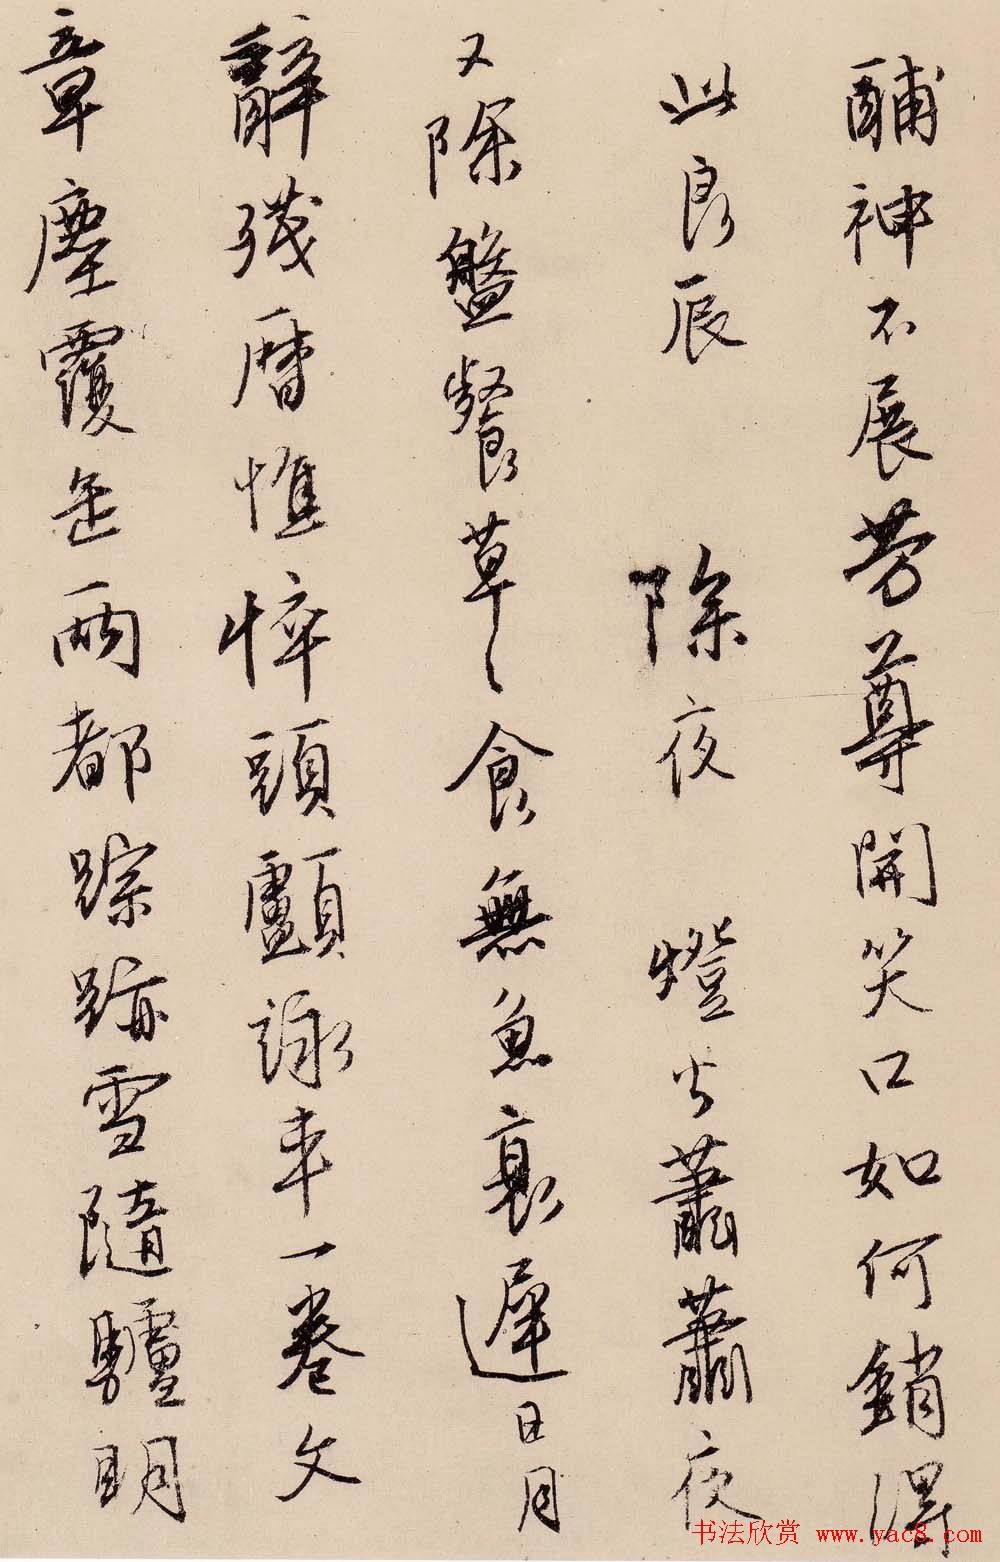 酺神不展芳尊開笑口如何銷得
此良辰 除夜 燈火蕭蕭夜
又除盤餐草〻食無魚衰遲日月
辭殘曆憔悴頭顱詠車一卷文
章塵覆缶兩都踪跡雪隨驢明
书法欣赏 www.yac8.com